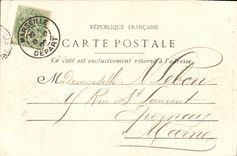 RÉPUBLIQUE FRANÇAISE
CARTE POSTALE
Ce côté est exclusivement réservé à l'adresse
MARSEILLE
DÉPART
Mademoiselle M
Rue St Laurent
Epernay
Marne